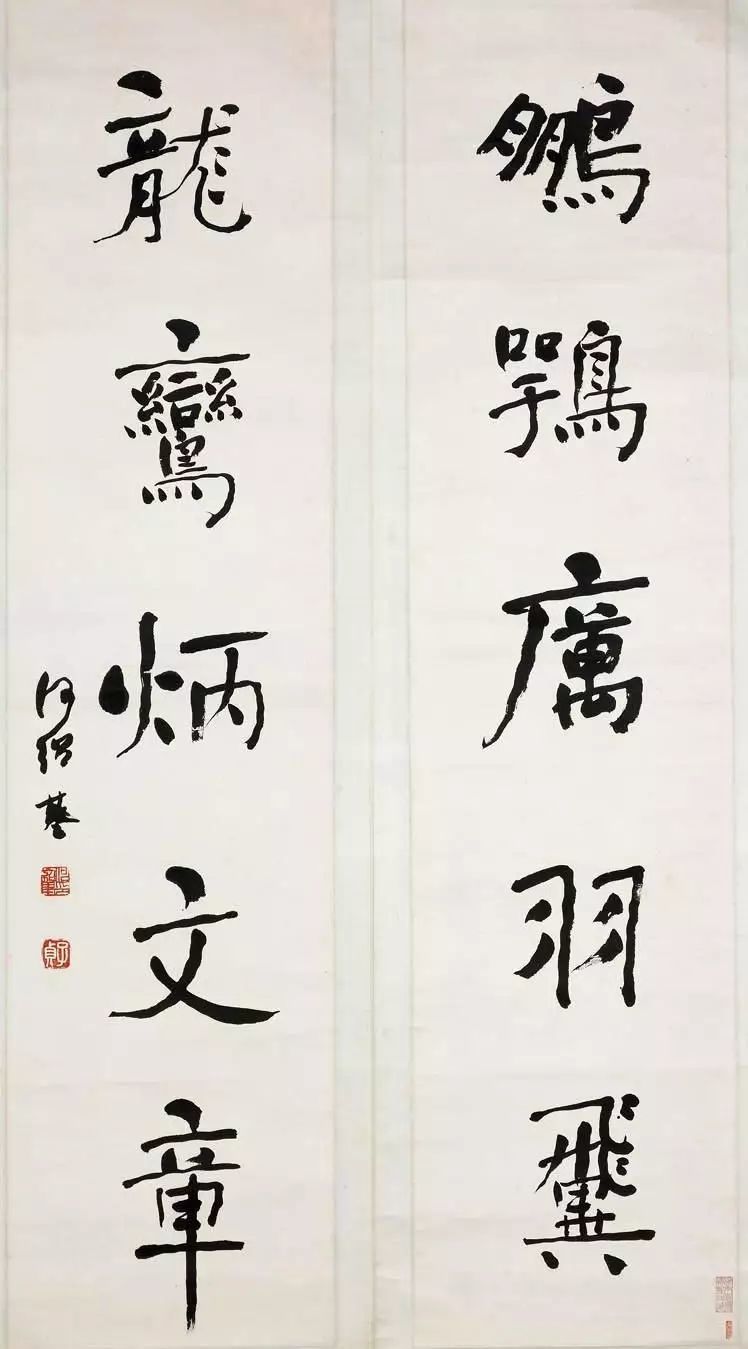 鵬鶚厲羽翼
龍鸞炳文章
何紹基
子貞